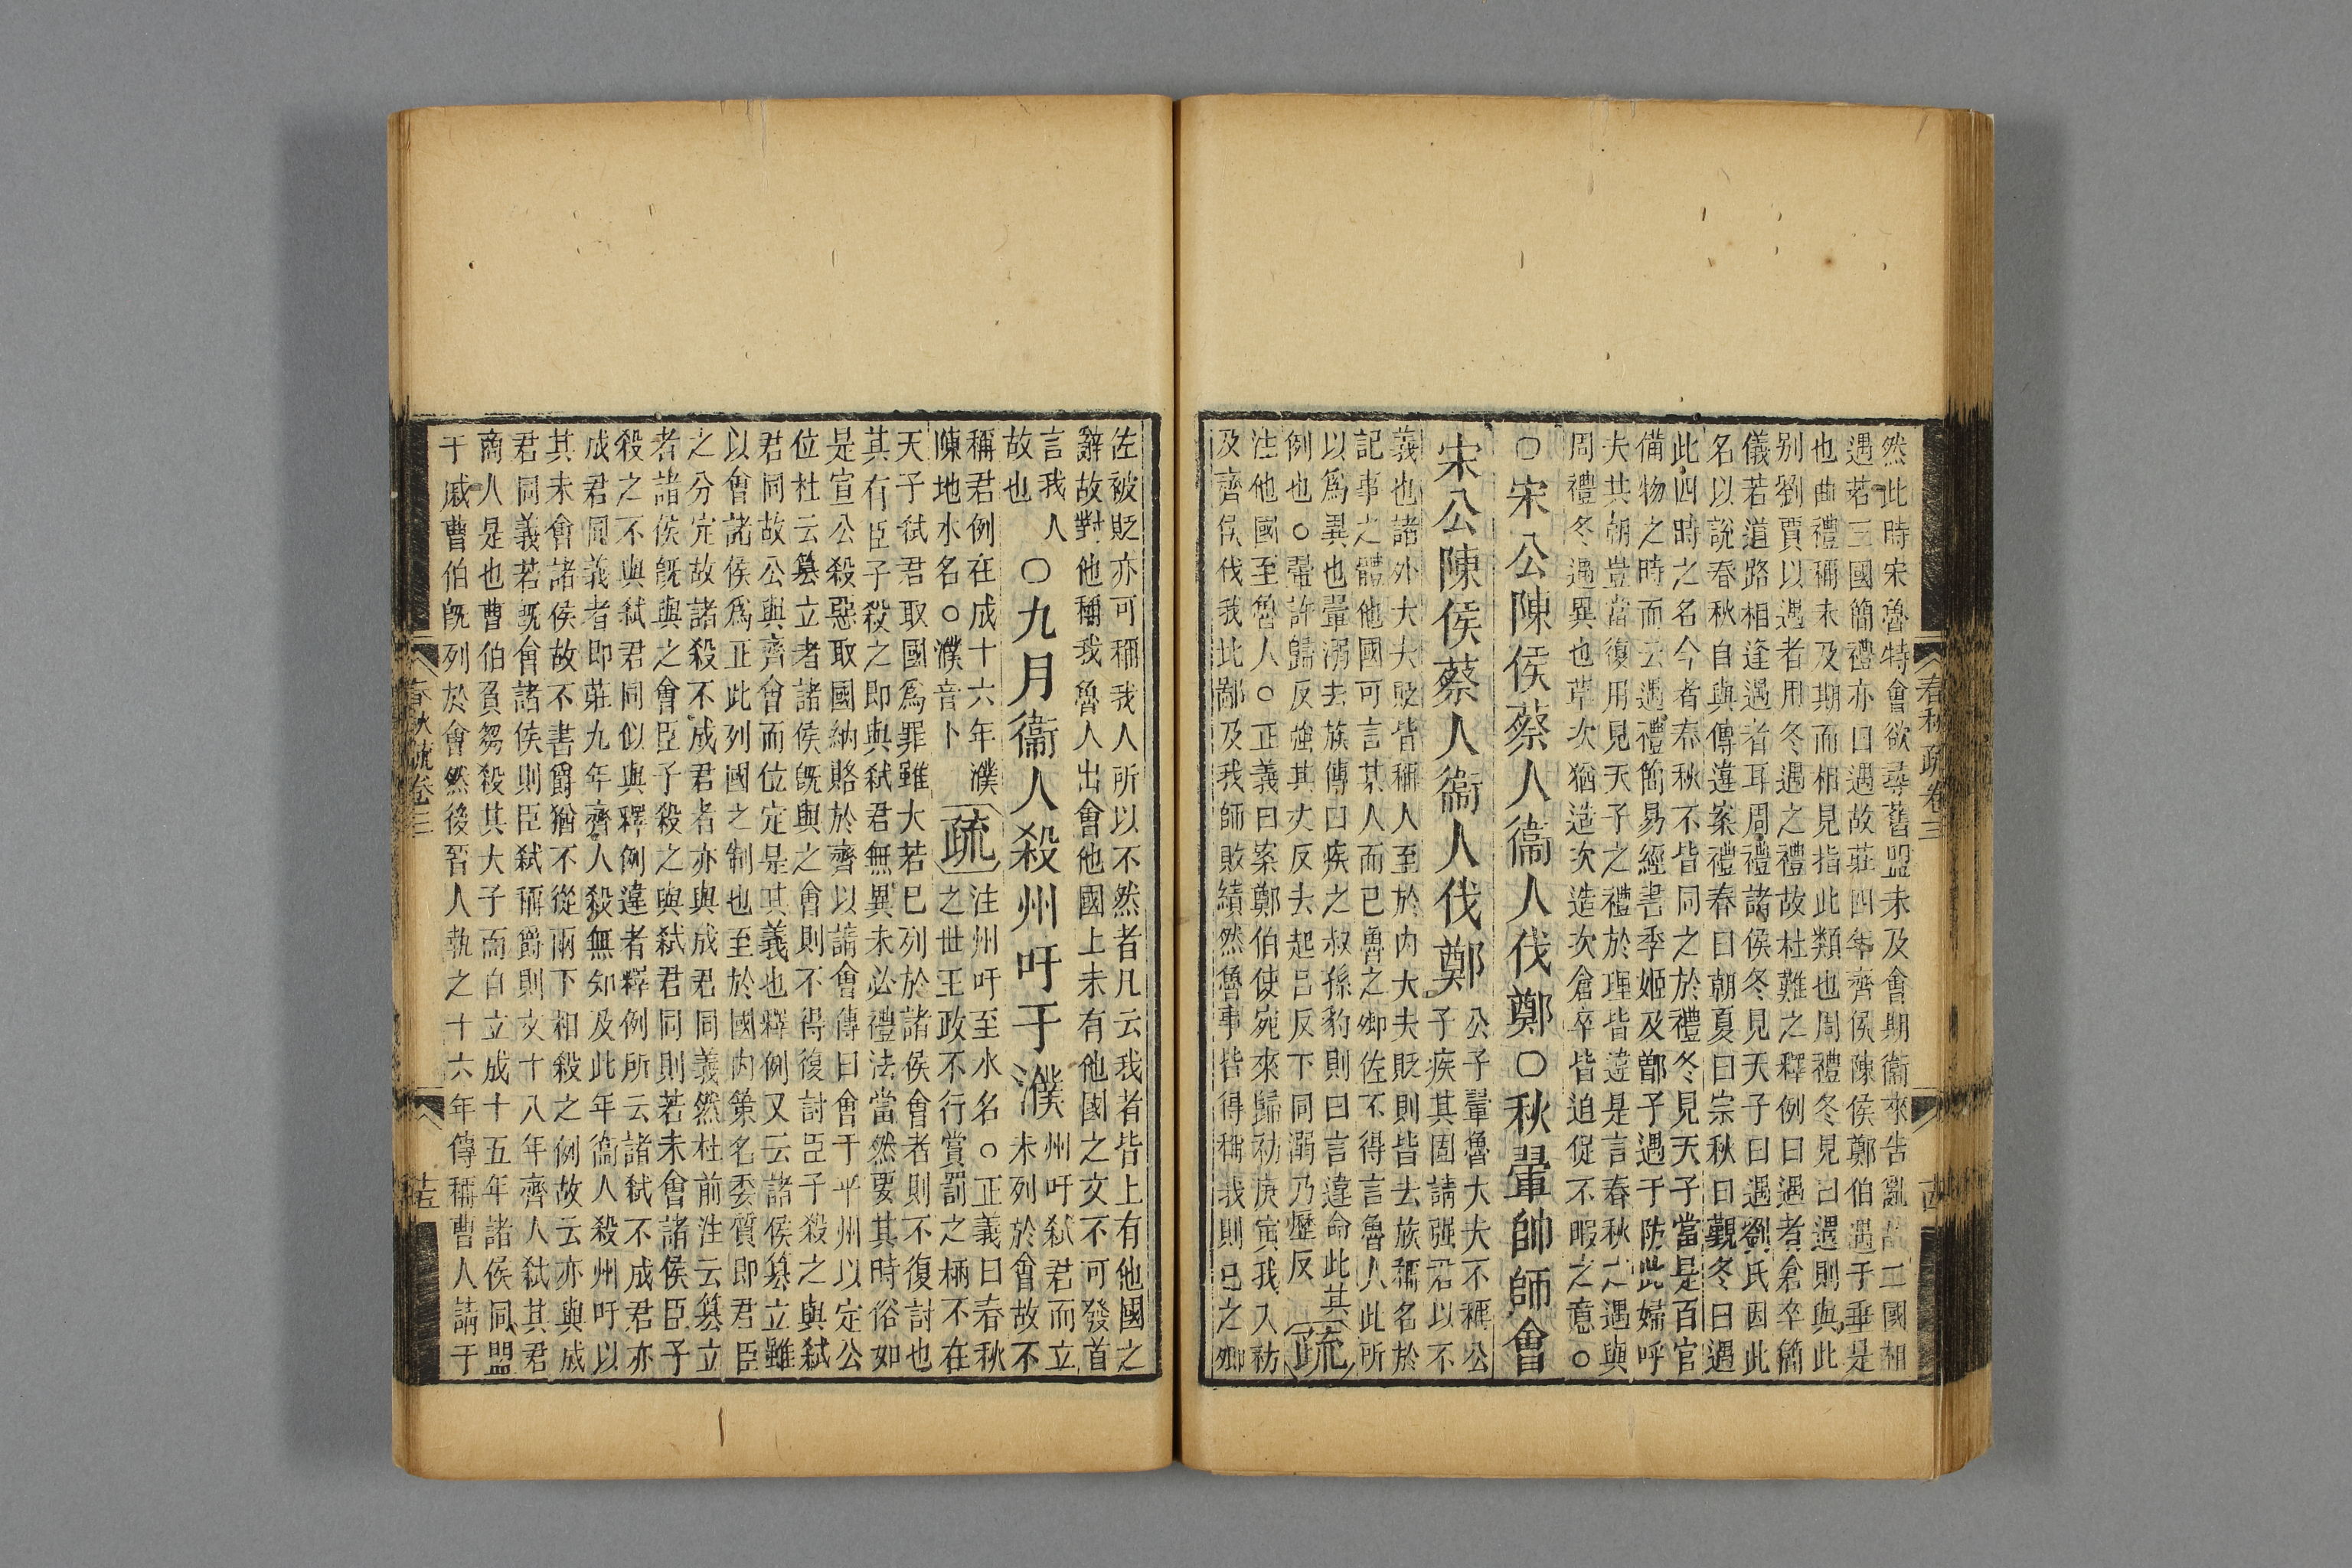 然此時宋魯特會欲尋舊盟未及會期衞來告亂故二國相
遇若三國簡禮亦曰遇故莊四年齊侯陳侯鄭伯遇于垂是
也曲禮稱未及期而相見指此類也周禮冬見曰遇則與此
别劉賈以遇者用冬遇之禮故杜難之釋例曰遇者倉卒簡
儀若道路相逢遇者耳周禮諸侯冬見天子曰遇劉氏因此
名以說春秋自與傳違案禮春曰朝夏曰宗秋曰覲冬曰遇
此四時之名今者春秋不皆同之於禮冬見天子當是百官
備物之時而云遇禮簡易經書季姬及鄫子遇于防此婦呼
夫共朝豈當復用見天子之禮於理皆違是言春秋之遇與
周禮冬遇異也草次猶造次造次倉卒皆迫促不暇之意○
○宋公陳侯蔡人衞人伐鄭○秋翬帥師會
宋公陳侯蔡人衞人伐鄭
公子翬魯大夫不稱公
子疾其固請强君以不
義也諸外大夫貶皆稱人至於内大夫貶則皆去族稱名於
記事之體他國可言某人而已魯之卿佐不得言魯人此所
以爲異也翬溺去族傳曰疾之叔孫豹則曰言違命此其
例也○翬許歸反強其丈反去起呂反下同溺乃歷反
疏
注他國至魯人○正義曰案鄭伯使宛來歸祊庚寅我入祊
及齊侯伐我北鄙及我師敗績然魯事皆得稱我則已之卿
春秋疏卷三
古
佐被貶亦可稱我人所以不然者凡云我者皆上有他國之
辭故對他稱我魯人出會他國上未有他國之文不可發首
言我人
故也
○九月衞人殺州吁于濮
州吁弑君而立
未列於會故不
稱君例在成十六年濮
陳地水名○濮音卜
疏
注州吁至水名○正義曰春秋
之世王政不行賞罰之柄不在
天子弑君取國爲罪雖大若已列於諸侯會者則不復討也
其有臣子殺之即與弑君無異未必禮法當然要其時俗如
是宣公殺惡取國納賂於齊以請會傳曰會于平州以定公
位杜云簒立者諸侯既與之會則不得復討臣子殺之與弑
君同故公與齊會而位定是其義也釋例又云諸侯簒立雖
以會諸侯爲正此列國之制也至於國内策名委質即君臣
之分完故諸殺不成君者亦與成君同義然杜前注云簒立
者諸侯既與之會臣子殺之與弑君同則若未會諸侯臣子
殺之不與弑君同似與釋例違者釋例所云諸弑不成君亦
成君同義者即莊九年齊人殺無知及此年衞人殺州吁以
其未會諸侯故不書爵猶不從兩下相殺之例故云亦與成
君同義若既會諸侯則臣弑稱爵則文十八年齊人弑其君
商人是也曹伯負芻殺其大子而自立成十五年諸侯同盟
于戚曹伯既列於會然後晉人執之十六年傳稱曹人請于
春秋疏卷三